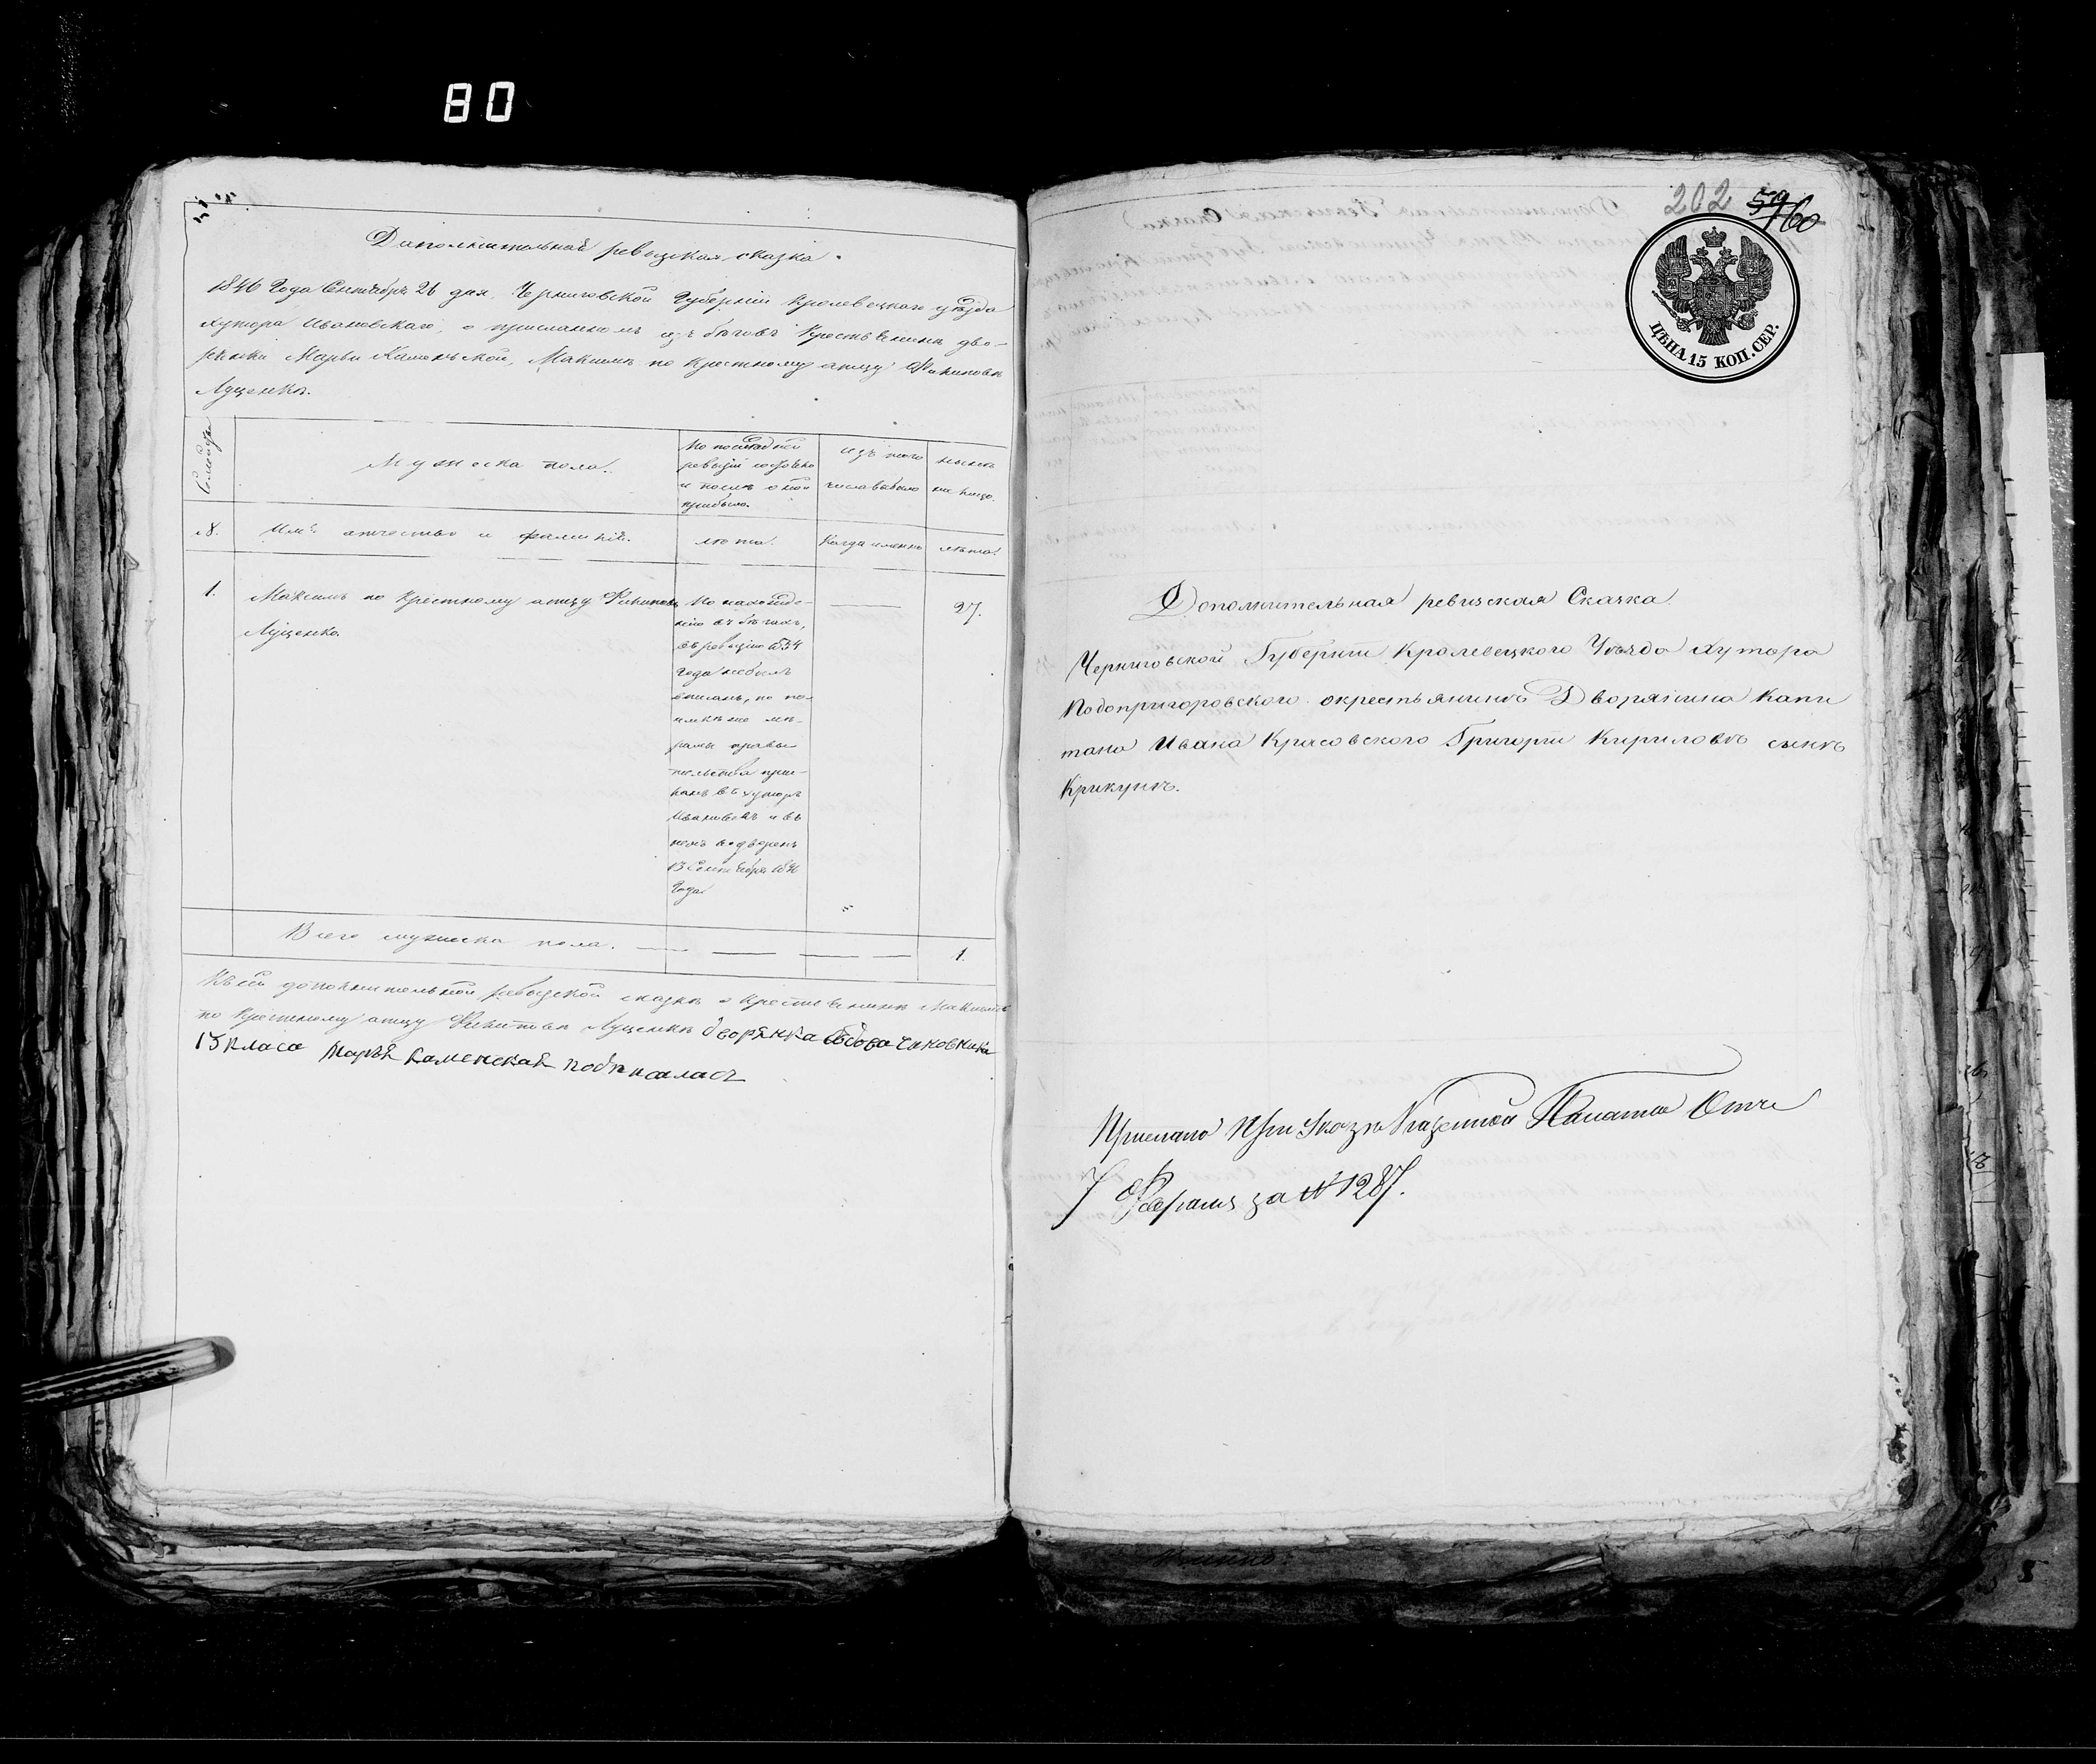 80
Дополнительная ревизская сказка.
1846 Года Сентября 26 дня, Черниговской Губернии Кролевецкаго уезда
хутора Ивановскаго, о присланномъ изъ беговъ Крестьянине дво-
рянки Марьи Каменской, Максиме по крестному отцу Филипове
Луценке.
Мужеска пола.
По последней
ревизии состояло
и после оной
прибыло.
изъ того
числа выбыло
ныне
на лицо.
№.
Имя отчество и фамилия.
лета.
Когда именно
лета.
1.
Максимъ по крестному отцу Филиповъ
Луценко.
По нахожде-
нию въ бегахъ,
въ ревизию 1834
Года небылъ
вписанъ, но по
прави-
тельства при-
сланъ въ хуторъ
Ивановскъ и въ
немъ водворенъ
13 Сентября 1846
Года
27.
Всего мужеска пола.
1.
Къ сей дополнительной ревизской сказке о крестьянине Максиме
по крестному отцу Филипове Луценке дворянка вдова чиновника
13 класа Марья Каменская подписалась
202
59/60
ЦѢНА 15 КОП. СЕР.
Дополнительная ревизская Сказка
Черниговской Губернии Кролевецкого Уезда Хутора
Подопригоровского окрестьянинѣ Дворянина Капи
тана Ивана Красовского Григории Кириловѣ сынѣ
Крикунѣ.
Прислано При Указѣ Казенной Палаты Отъ
7 Февраля за № 1287.